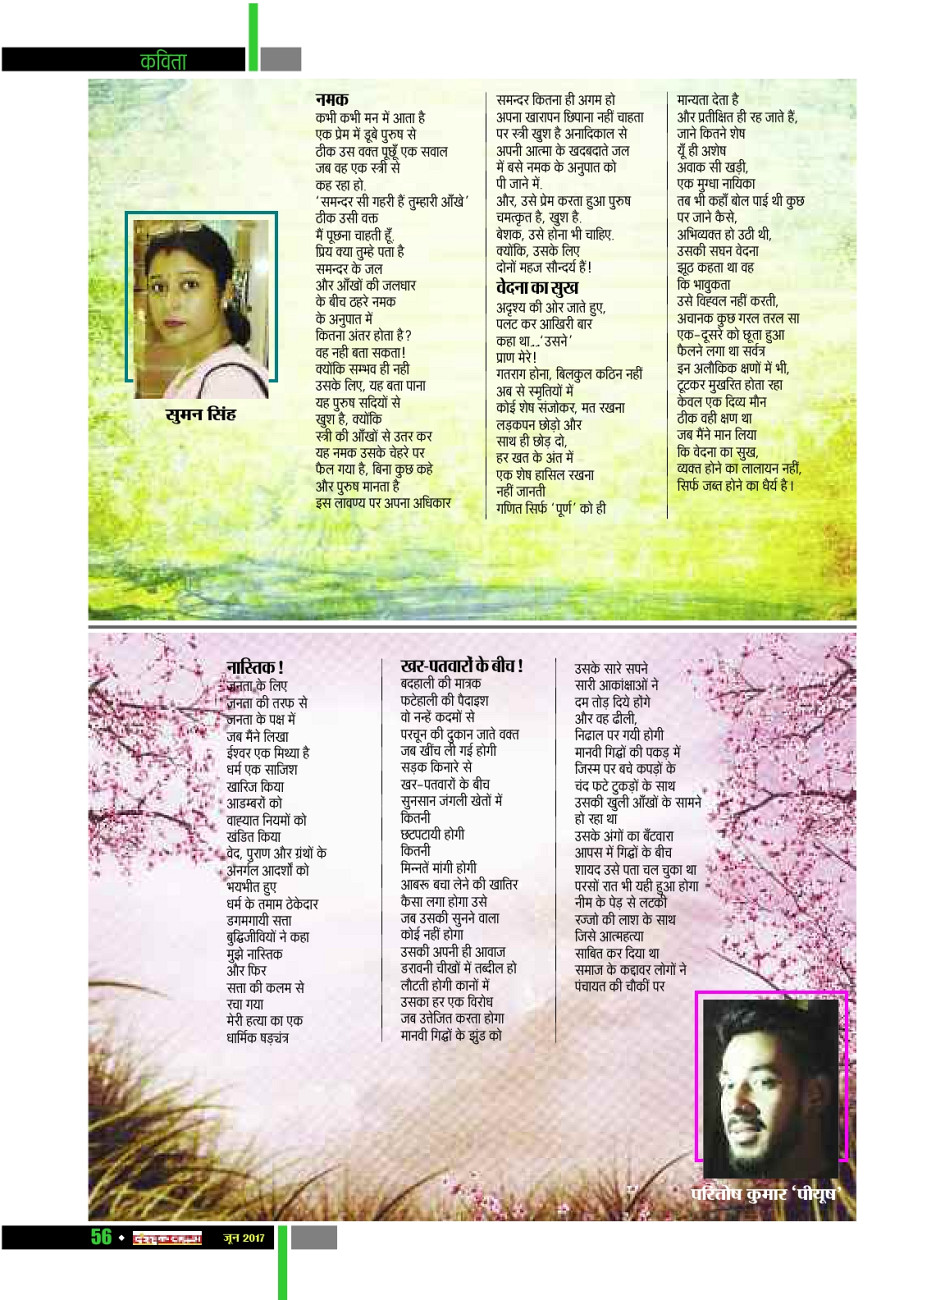 कविता
नमक
कभी कभी मन में आता है
एक प्रेम में डूबे पुरुष से
ठीक उस वक्त पूछूँ एक सवाल
जब वह एक स्त्री से
कह रहा हो.
‘समन्दर सी गहरी हैं तुम्हारी आँखे’
ठीक उसी वक्त
मैं पूछना चाहती हूँ.
प्रिय क्या तुम्हे पता है
समन्दर के जल
और आँखों की जलधार
के बीच ठहरे नमक
के अनुपात में
कितना अंतर होता है?
वह नही बता सकता!
क्योंकि सम्भव ही नही
उसके लिए, यह बता पाना
यह पुरुष सदियों से
खुश है, क्योंकि
स्त्री की आँखों से उतर कर
यह नमक उसके चेहरे पर
फैल गया है, बिना कुछ कहे
और पुरुष मानता है
इस लावण्य पर अपना अधिकार
समन्दर कितना ही अगम हो
अपना खारापन छिपाना नहीं चाहता
पर स्त्री खुश है अनादिकाल से
अपनी आत्मा के खदबदाते जल
में बसे नमक के अनुपात को
पी जाने में.
और, उसे प्रेम करता हुआ पुरुष
चमत्कृत है, खुश है.
बेशक, उसे होना भी चाहिए.
क्योंकि, उसके लिए
दोनों महज सौन्दर्य हैं!
वेदना का सुख
अदृश्य की ओर जाते हुए,
पलट कर आखिरी बार
कहा था..‘उसने’
प्राण मेरे!
गतराग होना, बिलकुल कठिन नहीं
अब से स्मृतियों में
कोई शेष संजोकर, मत रखना
लड़कपन छोड़ो और
साथ ही छोड़ दो,
हर खत के अंत में
एक शेष हासिल रखना
नहीं जानती
गणित सिर्फ ‘पूर्ण’ को ही
मान्यता देता है
और प्रतीक्षित ही रह जाते हैं,
जाने कितने शेष
यूँ ही अशेष
अवाक सी खड़ी,
एक मुग्धा नायिका
तब भी कहाँ बोल पाई थी कुछ
पर जाने कैसे,
अभिव्यक्त हो उठी थी,
उसकी सघन वेदना
झूठ कहता था वह
कि भावुकता
उसे विह्वल नहीं करती,
अचानक कुछ गरल तरल सा
एक-दूसरे को छूता हुआ
फैलने लगा था सर्वत्र
इन अलौकिक क्षणों में भी,
टूटकर मुखरित होता रहा
केवल एक दिव्य मौन
ठीक वही क्षण था
जब मैंने मान लिया
कि वेदना का सुख,
व्यक्त होने का लालायन नहीं,
सिर्फ जब्त होने का धैर्य है।
सुमन सिंह
नास्तिक!
जनता के लिए
जनता की तरफ से
जनता के पक्ष में
जब मैंने लिखा
ईश्वर एक मिथ्या है
धर्म एक साजिश
खारिज किया
आडम्बरों को
वाह्यात नियमों को
खंडित किया
वेद, पुराण और ग्रंथों के
अनर्गल आदर्शों को
भयभीत हुए
धर्म के तमाम ठेकेदार
डगमगायी सत्ता
बुद्धिजीवियों ने कहा
मुझे नास्तिक
और फिर
सत्ता की कलम से
रचा गया
मेरी हत्या का एक
धार्मिक षड़यंत्र
खर-पतवारों के बीच!
बदहाली की मात्रक
फटेहाली की पैदाइश
वो नन्हें कदमों से
परचून की दुकान जाते वक्त
जब खींच ली गई होगी
सड़क किनारे से
खर-पतवारों के बीच
सुनसान जंगली खेतों में
कितनी
छटपटायी होगी
कितनी
मिन्नतें मांगीं होगी
आबरू बचा लेने की खातिर
कैसा लगा होगा उसे
जब उसकी सुनने वाला
कोई नहीं होगा
उसकी अपनी ही आवाज
डरावनी चीखों में तब्दील हो
लौटती होगी कानों में
उसका हर एक विरोध
जब उत्तेजित करता होगा
मानवी गिद्धों के झुंड को
उसके सारे सपने
सारी आकांक्षाओं ने
दम तोड़ दिये होंगे
और वह ढीली,
निढाल पर गयी होगी
मानवी गिद्धों की पकड़ में
जिस्म पर बचे कपड़ों के
चंद फटे टुकड़ों के साथ
उसकी खुली आँखों के सामने
हो रहा था
उसके अंगों का बँटवारा
आपस में गिद्धों के बीच
शायद उसे पता चल चुका था
परसों रात भी यही हुआ होगा
नीम के पेड़ से लटकी
रज्जो की लाश के साथ
जिसे आत्महत्या
साबित कर दिया था
समाज के कद्दावर लोगों ने
पंचायत की चौकीं पर
परितोष कुमार ‘पीयूष’
56
जून 2017